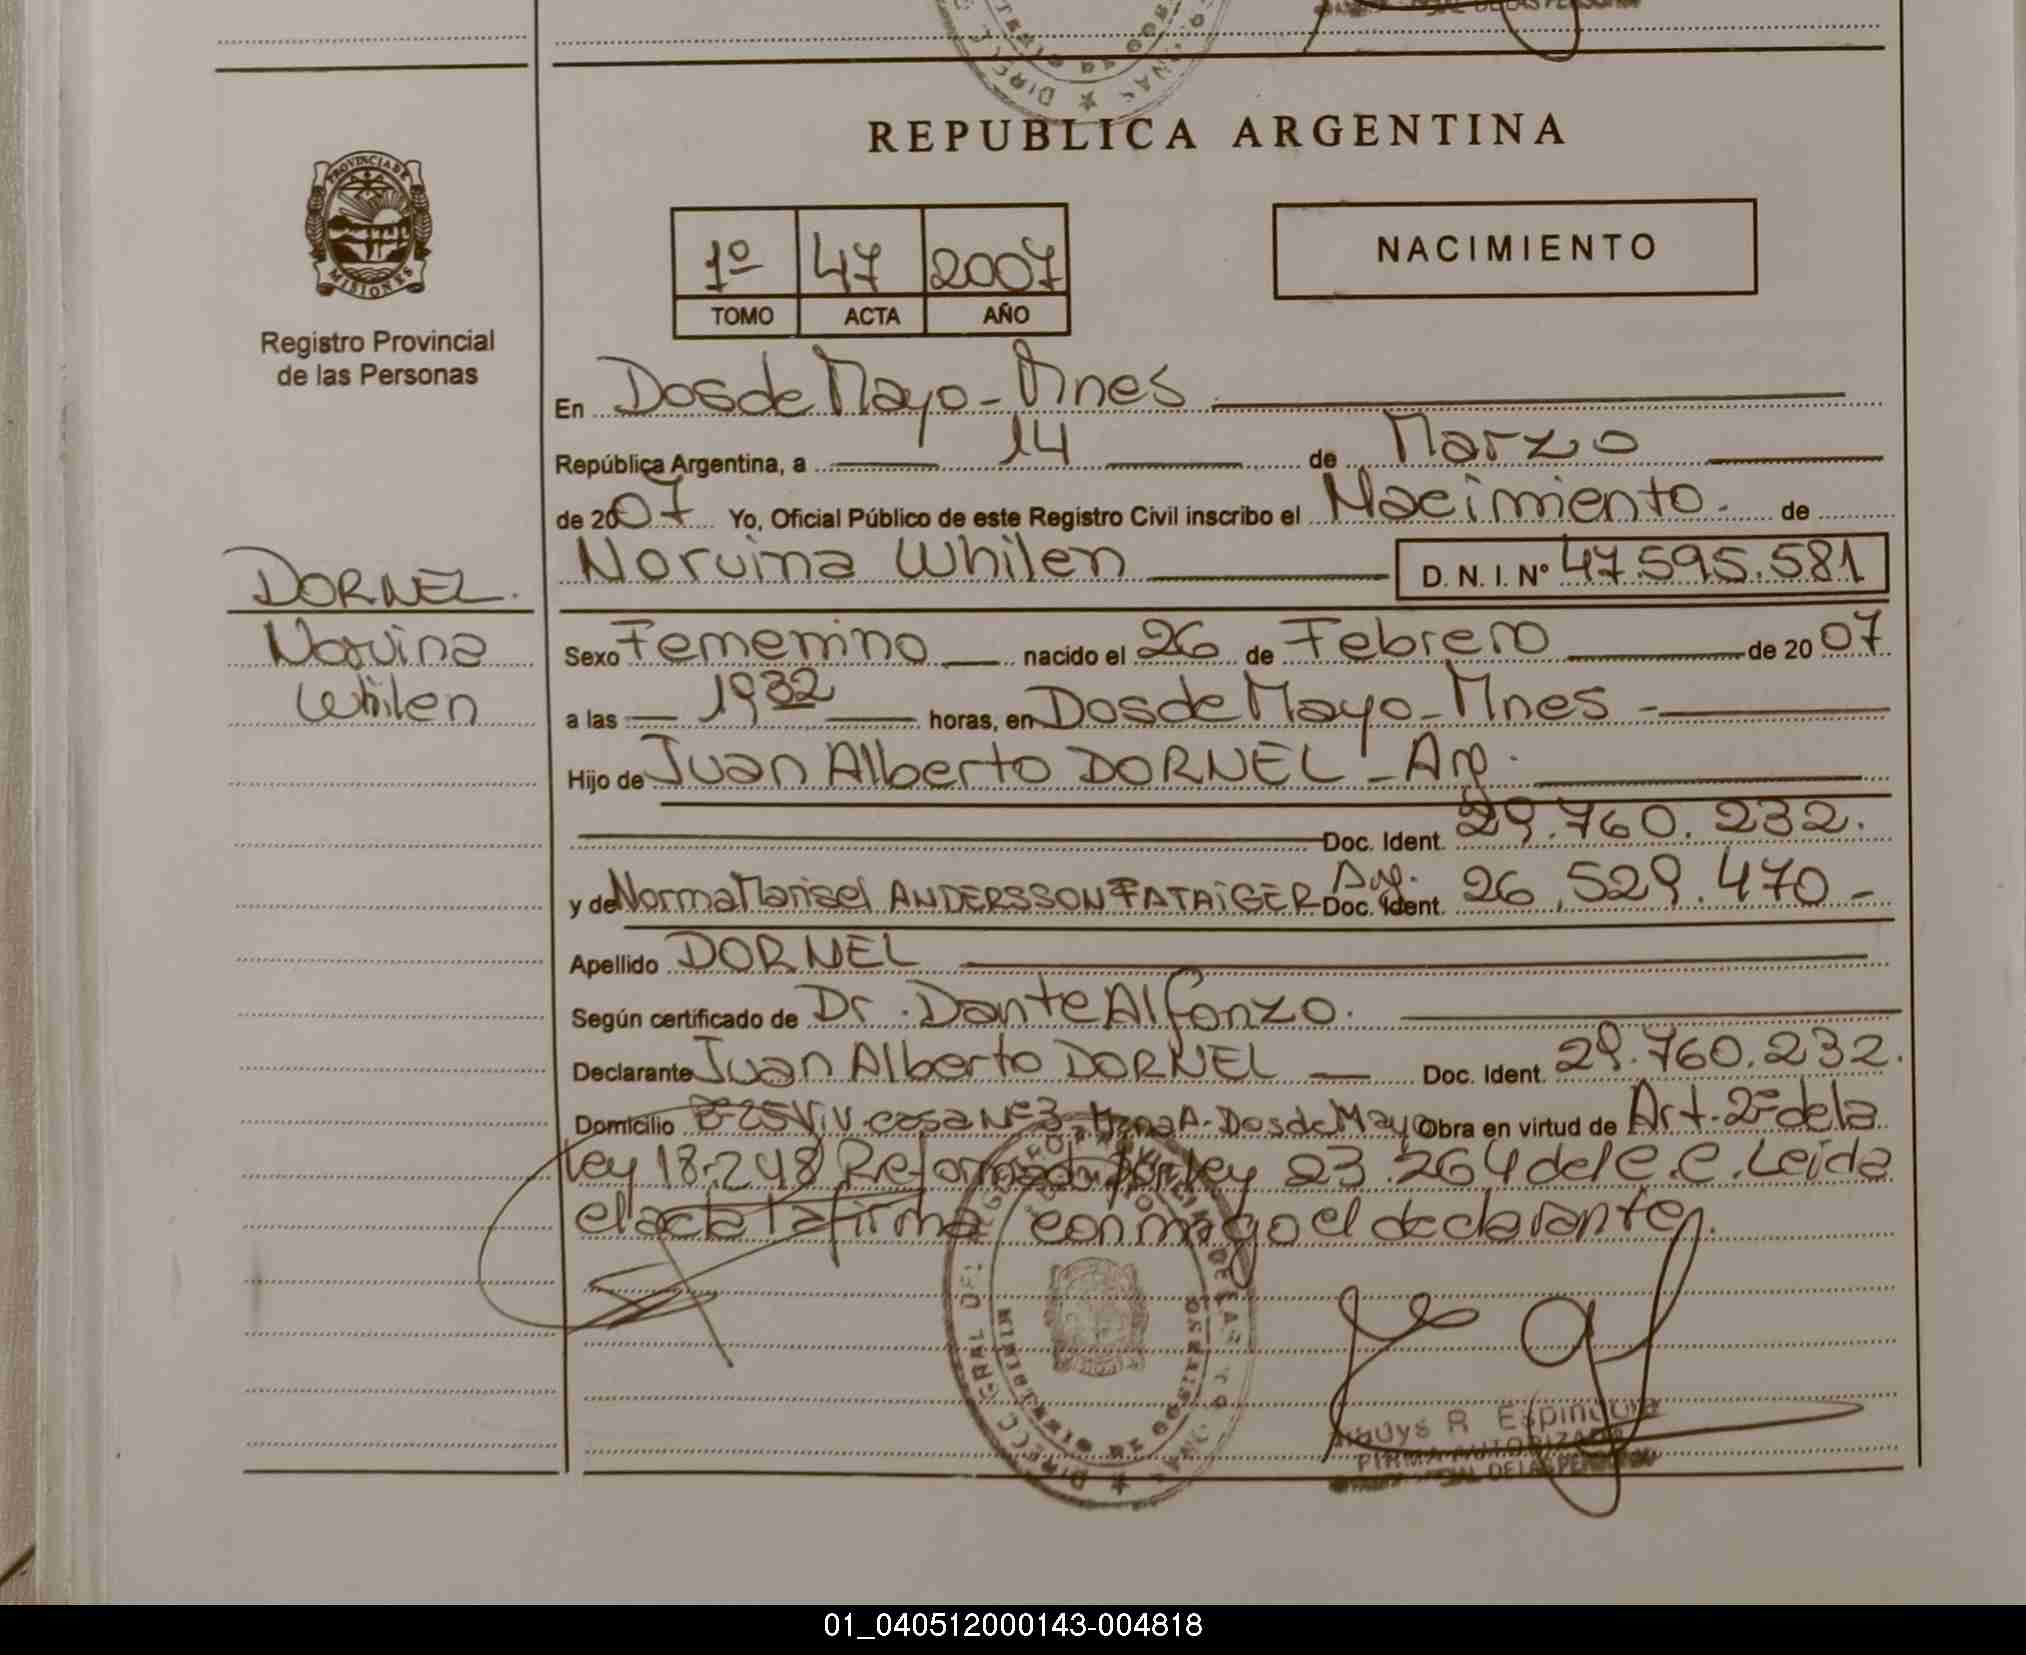 REPUBLICA ARGENTINA
PROVINCIA DE
MISIONES
Registro Provincial
de las Personas
1º 47 2007
TOMO ACTA AÑO
NACIMIENTO
En Dos de Mayo - Mnes
República Argentina, a 14 de Marzo
de 2007 Yo, Oficial Público de este Registro Civil inscribo el Nacimiento. de
Norvina Whilen D. N. I. Nº 47.595.581
DORNEL.
Norvina
Whilen
Sexo Femenino nacido el 26 de Febrero de 2007
a las 1932 horas, en Dos de Mayo - Mnes -
Hijo de Juan Alberto DORNEL - Arg.
Doc. Ident. 29.760.232.
y de Norma Marisel ANDERSSON FATAIGER Arg. Doc. Ident. 26.529.470 -
Apellido DORNEL
Según certificado de Dr. Dante Alfonzo.
Declarante Juan Alberto DORNEL Doc. Ident. 29.760.232.
Domicilio Bº 25 Viv. casa Nº 3, Mzna A - Dos de Mayo Obra en virtud de Art. 2º de la
Ley 18.248 Reformado por ley 23.264 del C.C. Leida
el acta la firma conmigo el declarante
R Espindola
FIRMA AUTORIZADA
DE LAS PERSONAS
01_040512000143-004818